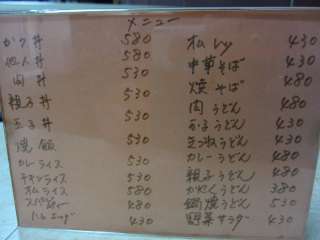 メニュー
かつ丼 580
他人丼 580
肉丼 530
親子丼 530
玉子丼 530
焼飯 530
カレーライス 530
チキンライス 530
オムライス 580
480
ハムエッグ 430
オムレツ 430
中華そば 430
焼そば 480
肉うどん 480
玉子うどん 430
きつねうどん 430
カレーうどん 480
親子うどん 480
かやくうどん 380
鍋焼うどん 530
野菜サラダー 430